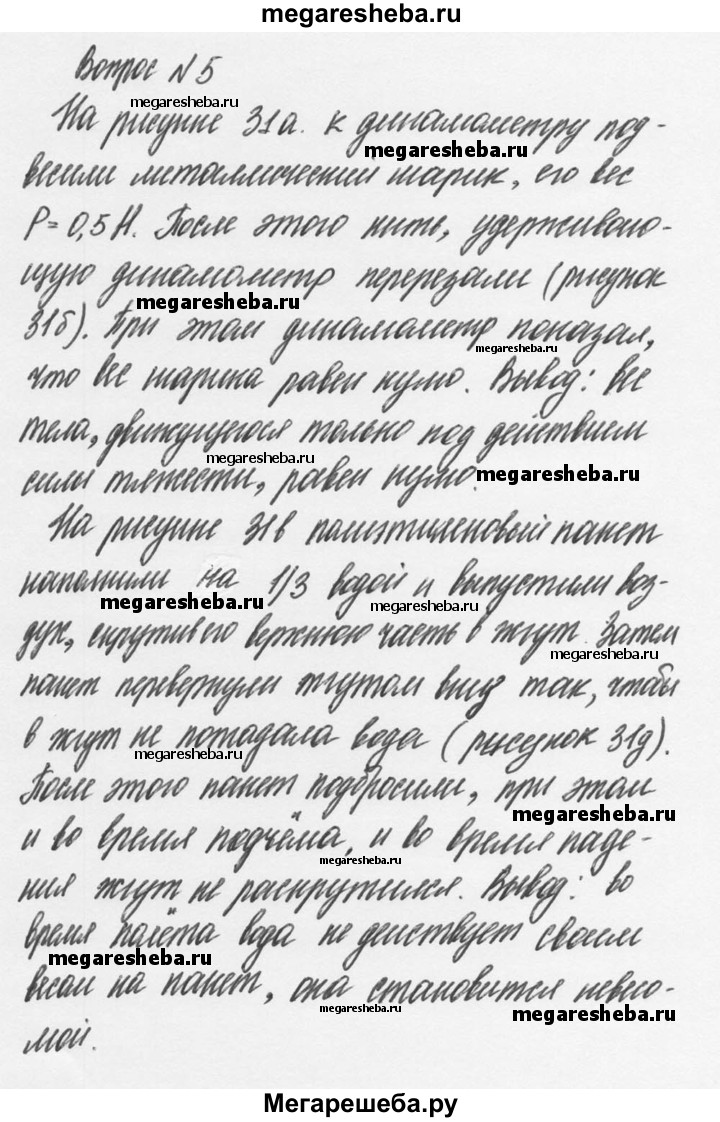 megaresheba.ru
Вопрос №5
megaresheba.ru
На рисунке 31а. к динамометру под-
megaresheba.ru
весили металлический шарик, его вес
P = 0,5 Н. После этого нить, удерживаю-
щую динамометр перерезали (рисунок
megaresheba.ru
31б). При этом динамометр показал,
megaresheba.ru
что вес шарика равен нулю. Вывод: вес
тела, движущегося только под действием
megaresheba.ru
силы тяжести, равен нулю.
megaresheba.ru
На рисунке 31в полиэтиленовый пакет
наполнили на 1/3 водой и выпустили воз-
megaresheba.ru
megaresheba.ru
дух, скрутив его верхнюю часть в жгут. Затем
megaresheba.ru
пакет перевернули жгутом вниз так, чтобы
в жгут не попадала вода (рисунок 31д).
megaresheba.ru
После этого пакет подбросили, при этом
megaresheba.ru
и во время подъёма, и во время паде-
megaresheba.ru
ния жгут не раскрутился. Вывод: во
время полёта вода не действует своим
megaresheba.ru
весом на пакет, она становится невесо-
megaresheba.ru
megaresheba.ru
мой.
Мегарешеба.ру